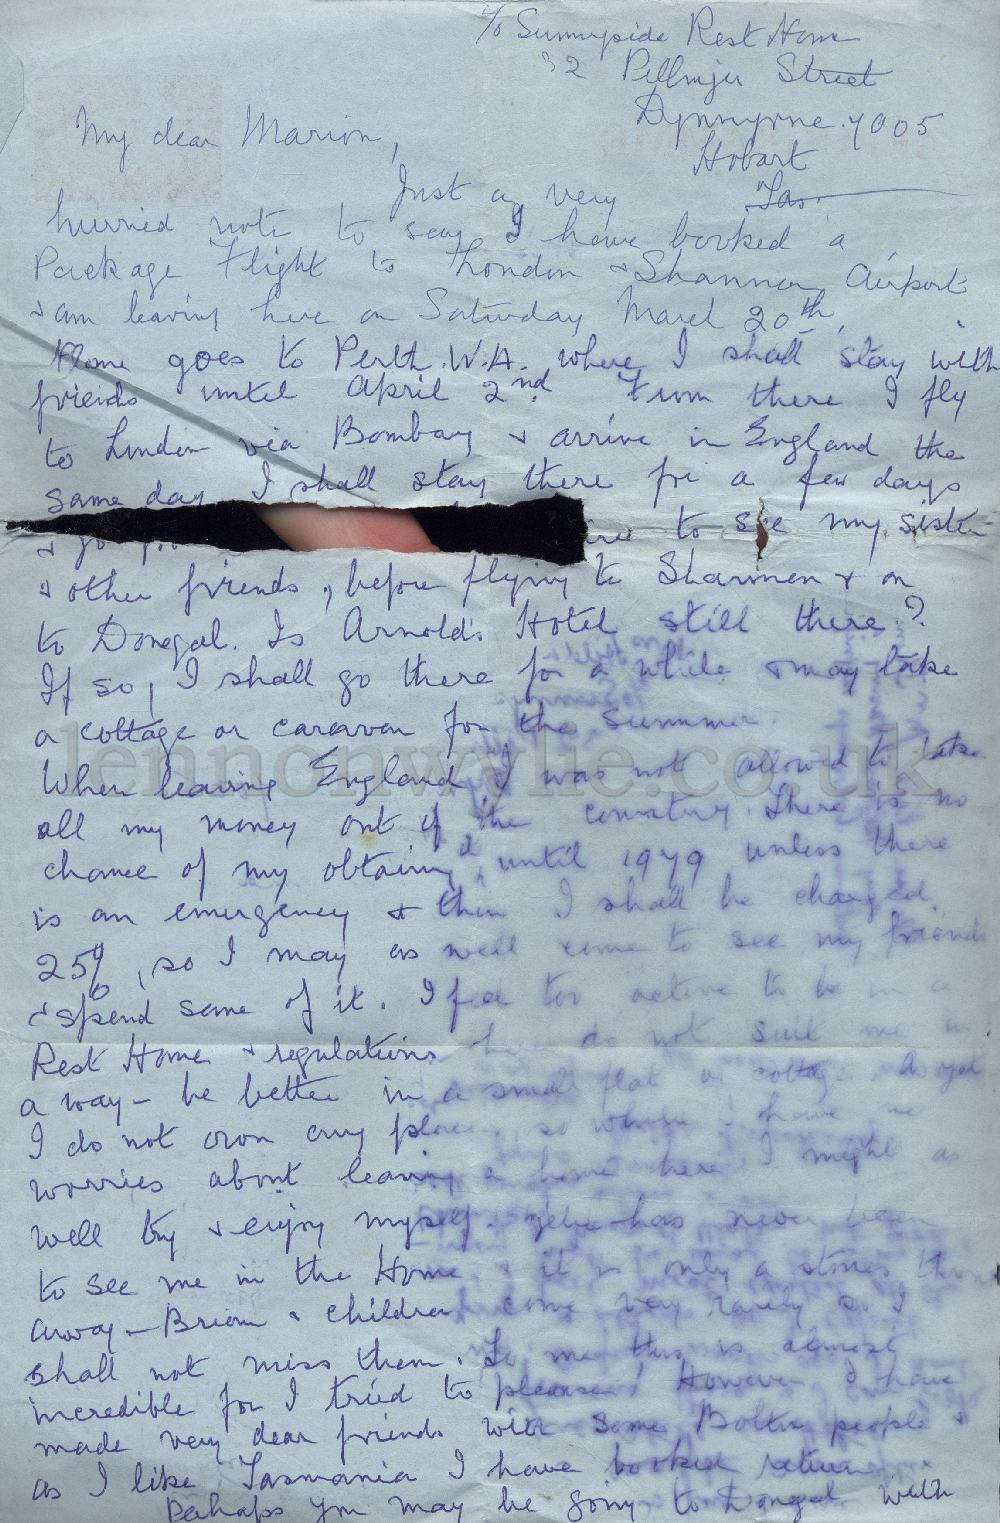 c/o Sunnyside Rest Home
32 Street
Dynnyrne. 7005
Hobart
Tas.
My dear Marion,
Just a very
hurried note to say I have booked a
Package Flight to London & Shannon Airport
& am leaving here on Saturday March 20th.
Plane goes to Perth. W.A. where I shall stay with
friends until April 2nd. From there I fly
to London via Bombay & arrive in England the
same day. I shall stay there for a few days
& go to see my sister
& other friends, before flying to Shannon & on
to Donegal. Is Arnold's Hotel still there?
If so, I shall go there for a while & may take
a cottage or caravan for the summer.
lennonwylie.co.uk
When leaving England I was not allowed to take
all my money out of the country. There is no
chance of my obtaining it until 1979 unless there
is an emergency & then I shall be charged
25%, so I may as well come to see my friends
& spend some of it. I feel too active to be in a
Rest Home & regulations here do not suit me in
a way - be better in a small flat or cottage. As yet
I do not own any place, so where I have no
worries about leaving a home here I might as
well try & enjoy myself. has never been
to see me in the Home & it is only a stones throw
away - Brian & children come very rarely so I
shall not miss them. To me this is almost
incredible for I tried to please! However I have
made very dear friends with some people &
as I like Tasmania I have booked return
Perhaps you may be going to Donegal with